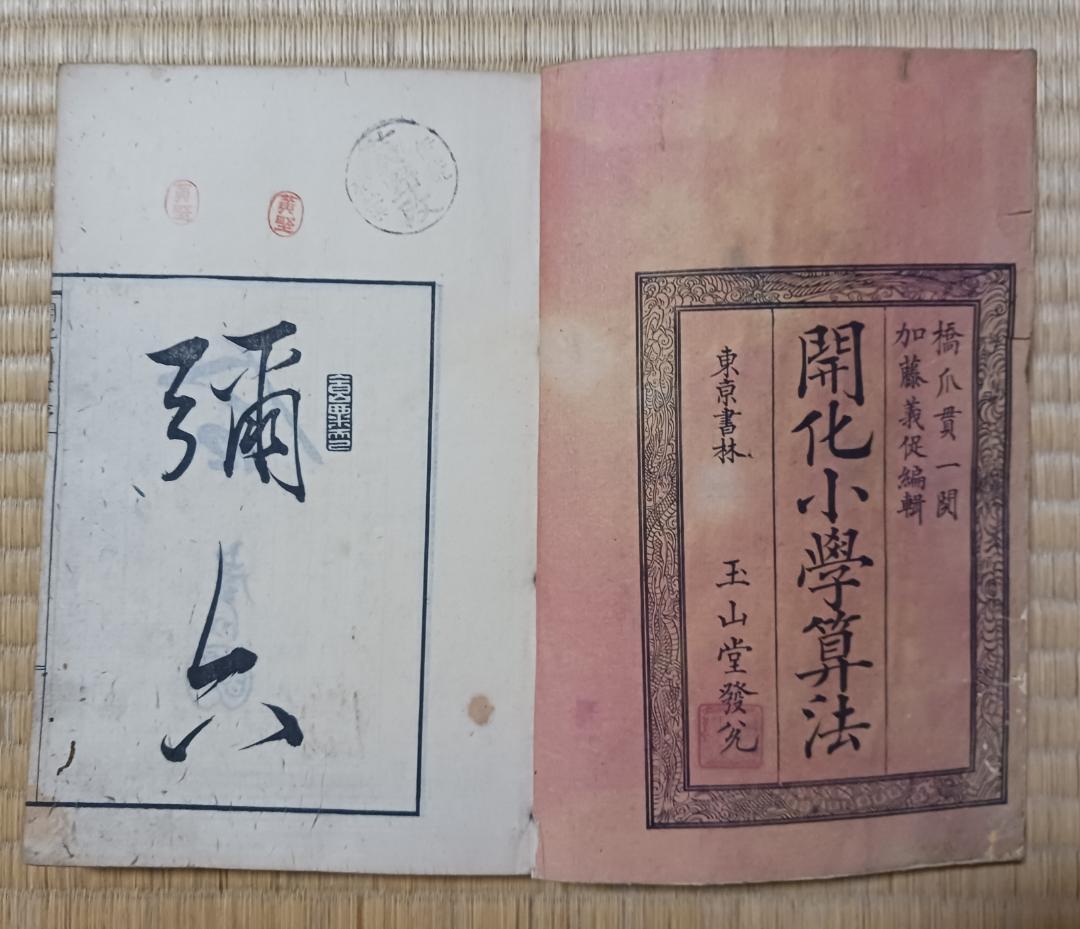 橋爪貫一閲
加藤義促編輯
開化小學算法
東京書林
玉山堂發兌
彌六
黄堅
黄堅